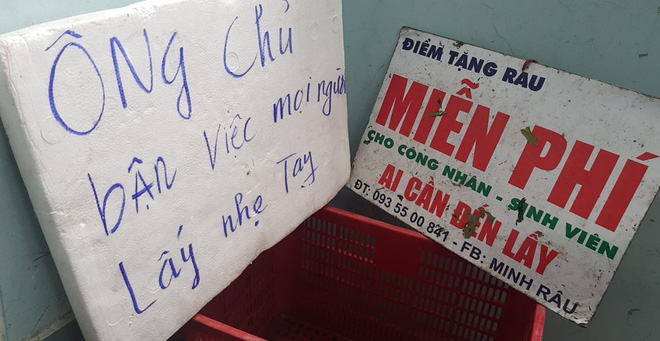 ÔNG CHỦ
bẬN ViỆC mọi người
LẤy nhẹ TAy
ĐIỂM TẶNG RÂU
MIỄN PHÍ
CHO CÔNG NHÂN - SINH VIÊN
AI CẦN ĐẾN LẤY
ĐT: 093 55 00 841 - FB: MINH RÂU